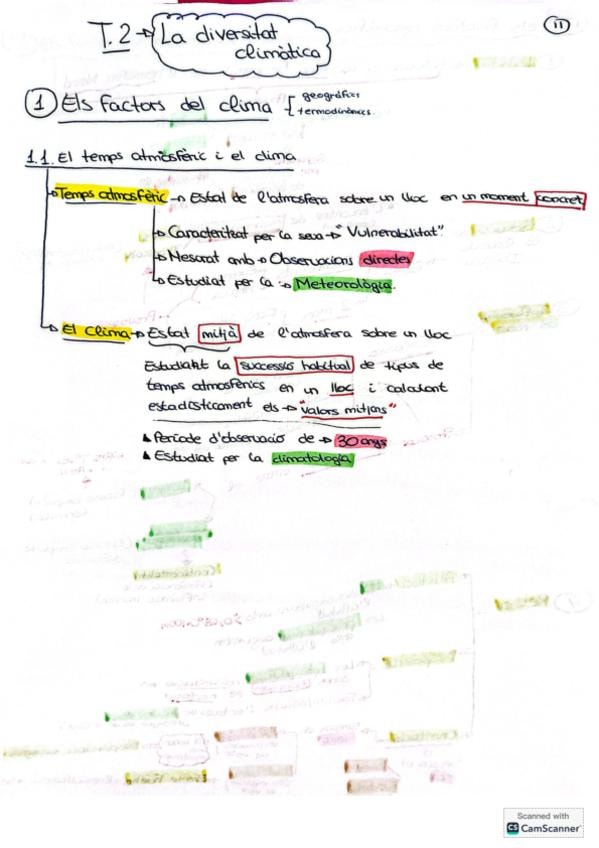 T.2 → La diversitat
climàtica
11
① Els factors del clima { geogràfics
termodinàmics.
1.1. El temps atmosfèric i el clima
Temps atmosfèric → Estat de l'atmosfera sobre un lloc en un moment concret
Caracteritzat per la seva → "Vulnerabilitat".
Mesurat amb → Observacions directes
Estudiat per la → Meteorològia.
El Clima → Estat mitjà de l'atmosfera sobre un lloc
Estudiant la successió habitual de tipus de
temps atmosfèrics en un lloc i calculant
estadísticament els → "valors mitjans"
▲ Període d'observació de → 30 anys
▲ Estudiat per la climatologia
Scanned with
CS CamScanner